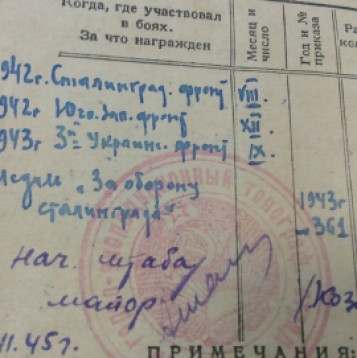 Когда, где участвовал
в боях.
За что награжден
Месяц и
число
Год и №
приказа
1942г. Сталинград. фронт VIII
1942г. Юго-Зап. фронт XII
1943г 3й Украинс. фронт IX.
медаль "За оборону
Сталинграда"
1943г
361
Нач. штаба
майор
/Коз
11.45г.
ПРИМЕЧАНИЯ: